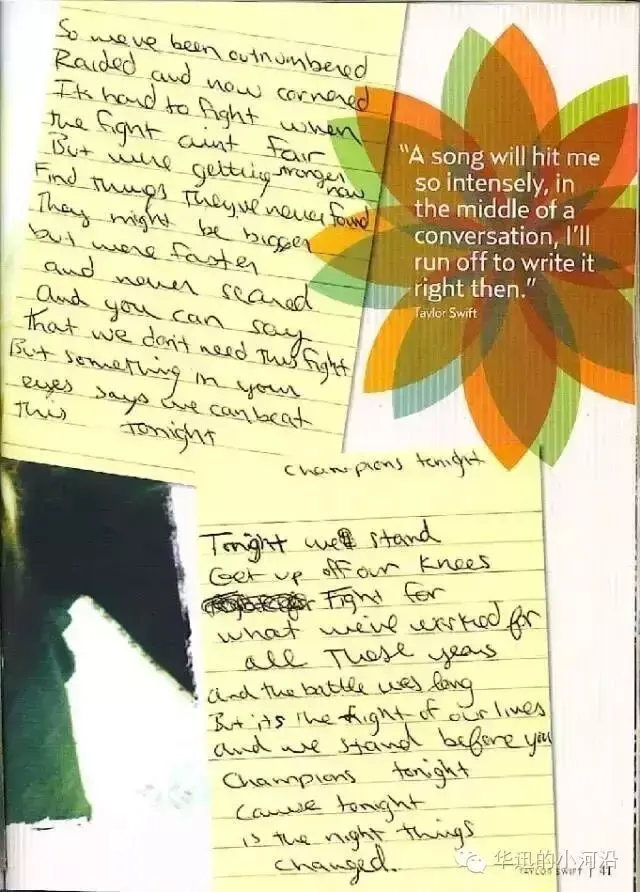 So we've been outnumbered
Raided and now cornered
Its hard to fight when
the fight aint fair
But were getting stronger now
Find things They've never found
They might be bigger
but were faster
and never scared
And you can say
That we don't need this fight
But something in your
eyes says we can beat
this tonight
"A song will hit me
so intensely, in
the middle of a
conversation, I'll
run off to write it
right then."
Taylor Swift
Champions tonight
Tonight we'll stand
Get up off our knees
Fight for
what we've worked for
all These years
and the battle was long
But its the fight of our lives
and we stand before you
Champions tonight
Cause tonight
is the night things
changed.
华迅的小河沿
TAYLOR SWIFT | 41